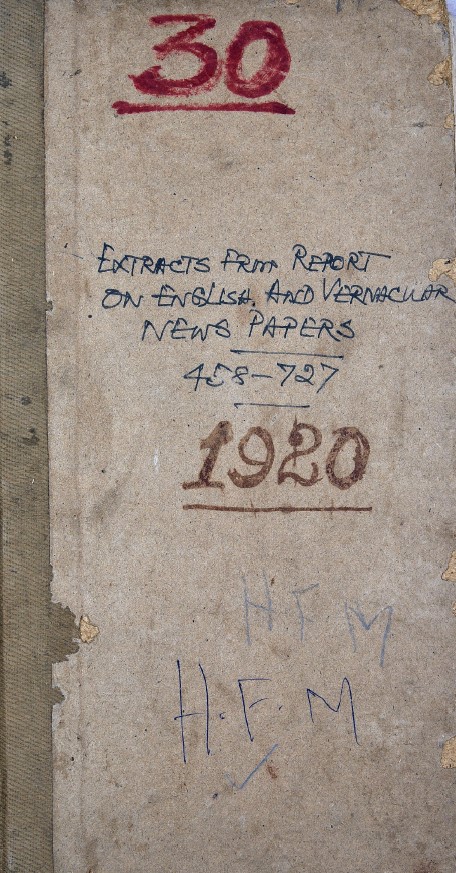 30
EXTRACTS FROM REPORT
ON ENGLISH. AND VERNACULAR
NEWS PAPERS
458-727
1920
H F M
H. F. M